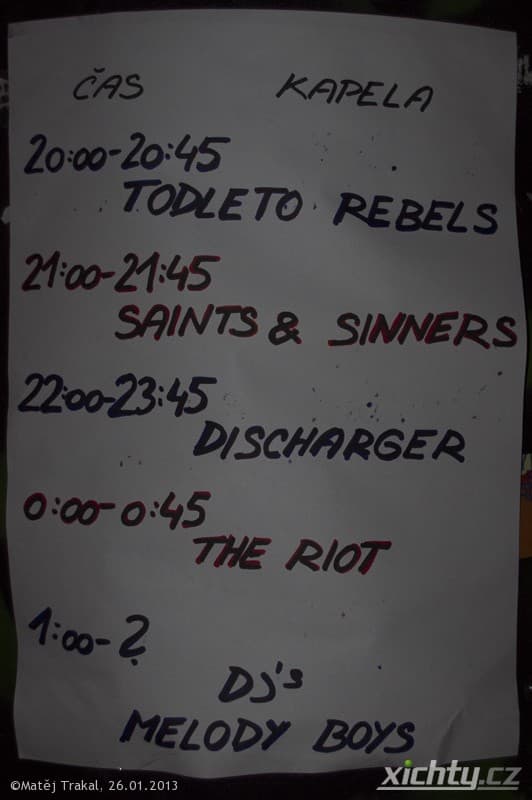 ČAS KAPELA
20:00-20:45
TODLETO REBELS
21:00-21:45
SAINTS & SINNERS
22:00-23:45
DISCHARGER
0:00-0:45
THE RIOT
1:00-?
DJ's
MELODY BOYS
©Matěj Trakal, 26.01.2013
xichty.cz